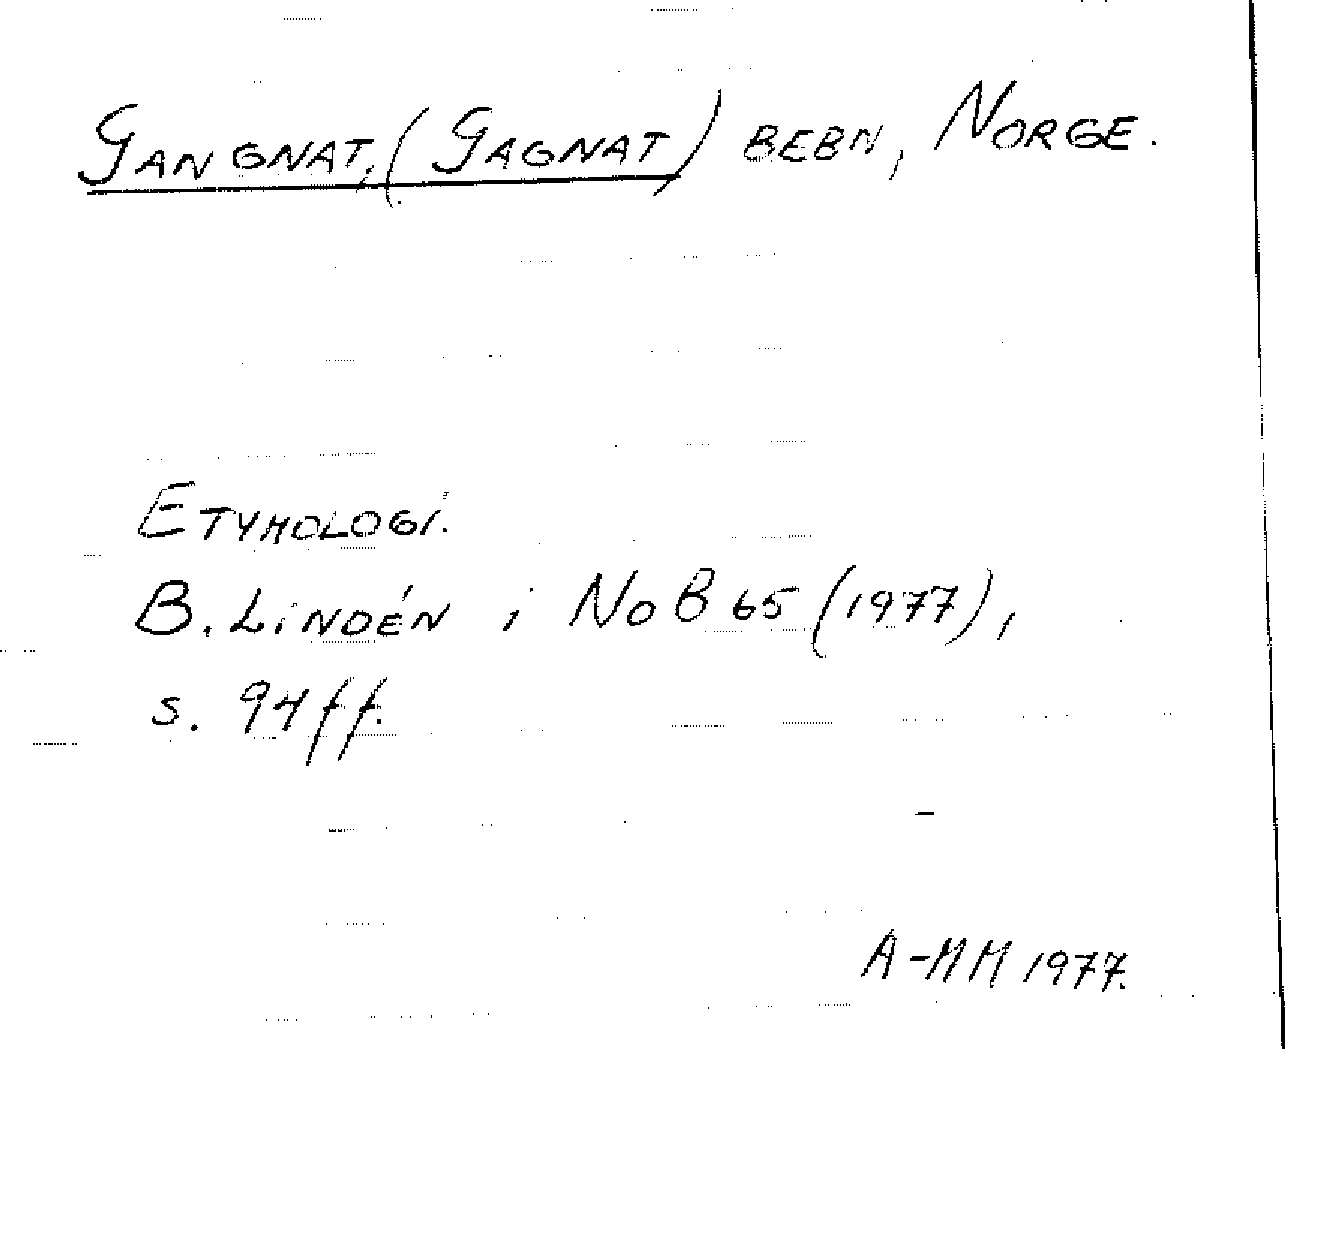 GANGNAT, (GAGNAT) BEBN, NORGE.
ETYMOLOGI.
B. LINDÉN i NoB 65 (1977),
s. 94 ff.
A-MM 1977.